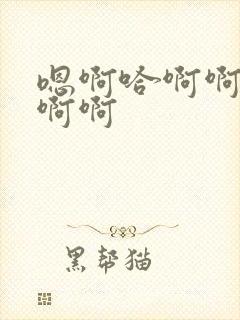 嗯啊哈~啊啊
啊啊
黑帮猫